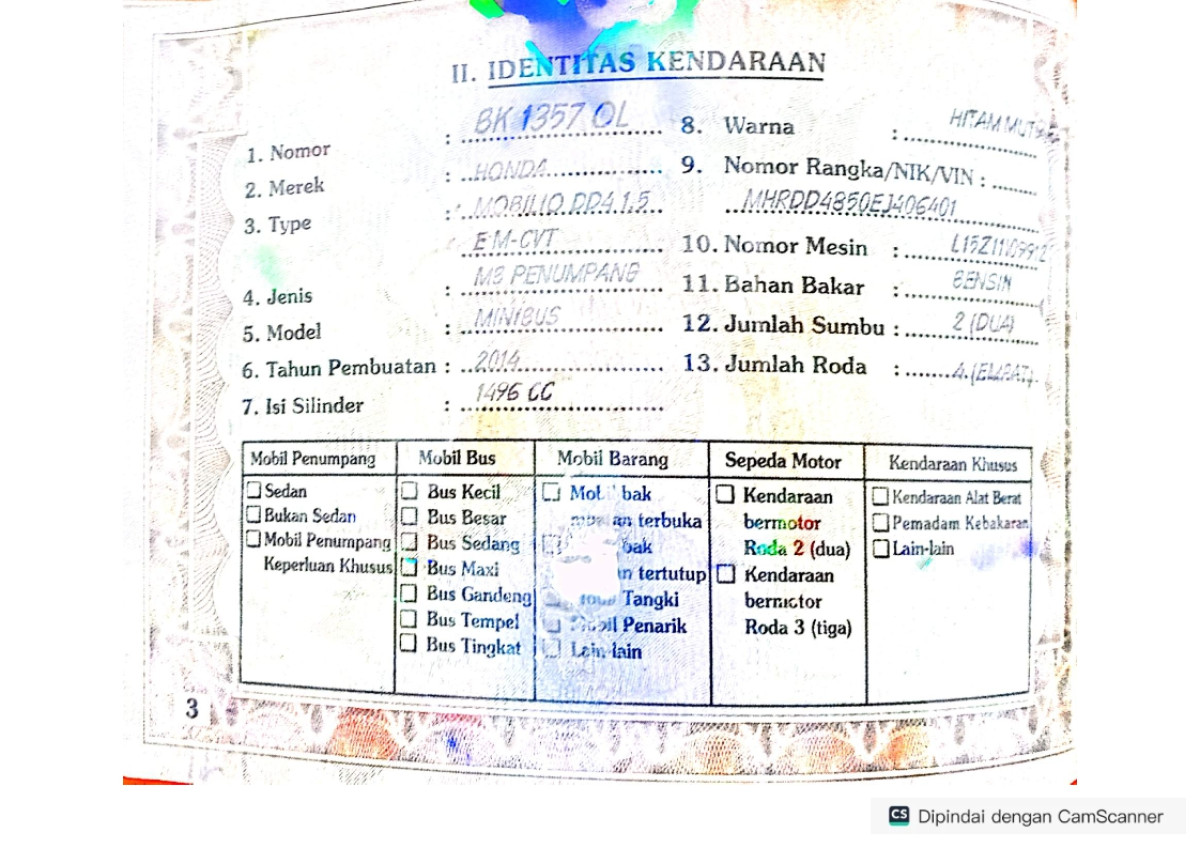 II. IDENTITAS KENDARAAN
1. Nomor : BK 1357 OL
2. Merek : HONDA
3. Type : MOBILIO DD4 1,5
E M-CVT
4. Jenis : M3 PENUMPANG
5. Model : MINIBUS
6. Tahun Pembuatan : 2014
7. Isi Silinder : 1496 CC
8. Warna : HITAM
9. Nomor Rangka/NIK/VIN :
MHRDD4850EJ406401
10. Nomor Mesin :
11. Bahan Bakar : BENSIN
12. Jumlah Sumbu : 2 (DUA)
13. Jumlah Roda : 4 (EMPAT)
Mobil Penumpang
Sedan
Bukan Sedan
Mobil Penumpang
Keperluan Khusus
Mobil Bus
Bus Kecil
Bus Besar
Bus Sedang
Bus Maxi
Bus Gandeng
Bus Tempel
Bus Tingkat
Mobil Barang
bak
terbuka
bak
tertutup
Tangki
Mobil Penarik
Lain-lain
Sepeda Motor
Kendaraan
bermotor
Roda 2 (dua)
Kendaraan
bermotor
Roda 3 (tiga)
Kendaraan Khusus
Kendaraan Alat Berat
Pemadam Kebakaran
Lain-lain
3
CS Dipindai dengan CamScanner